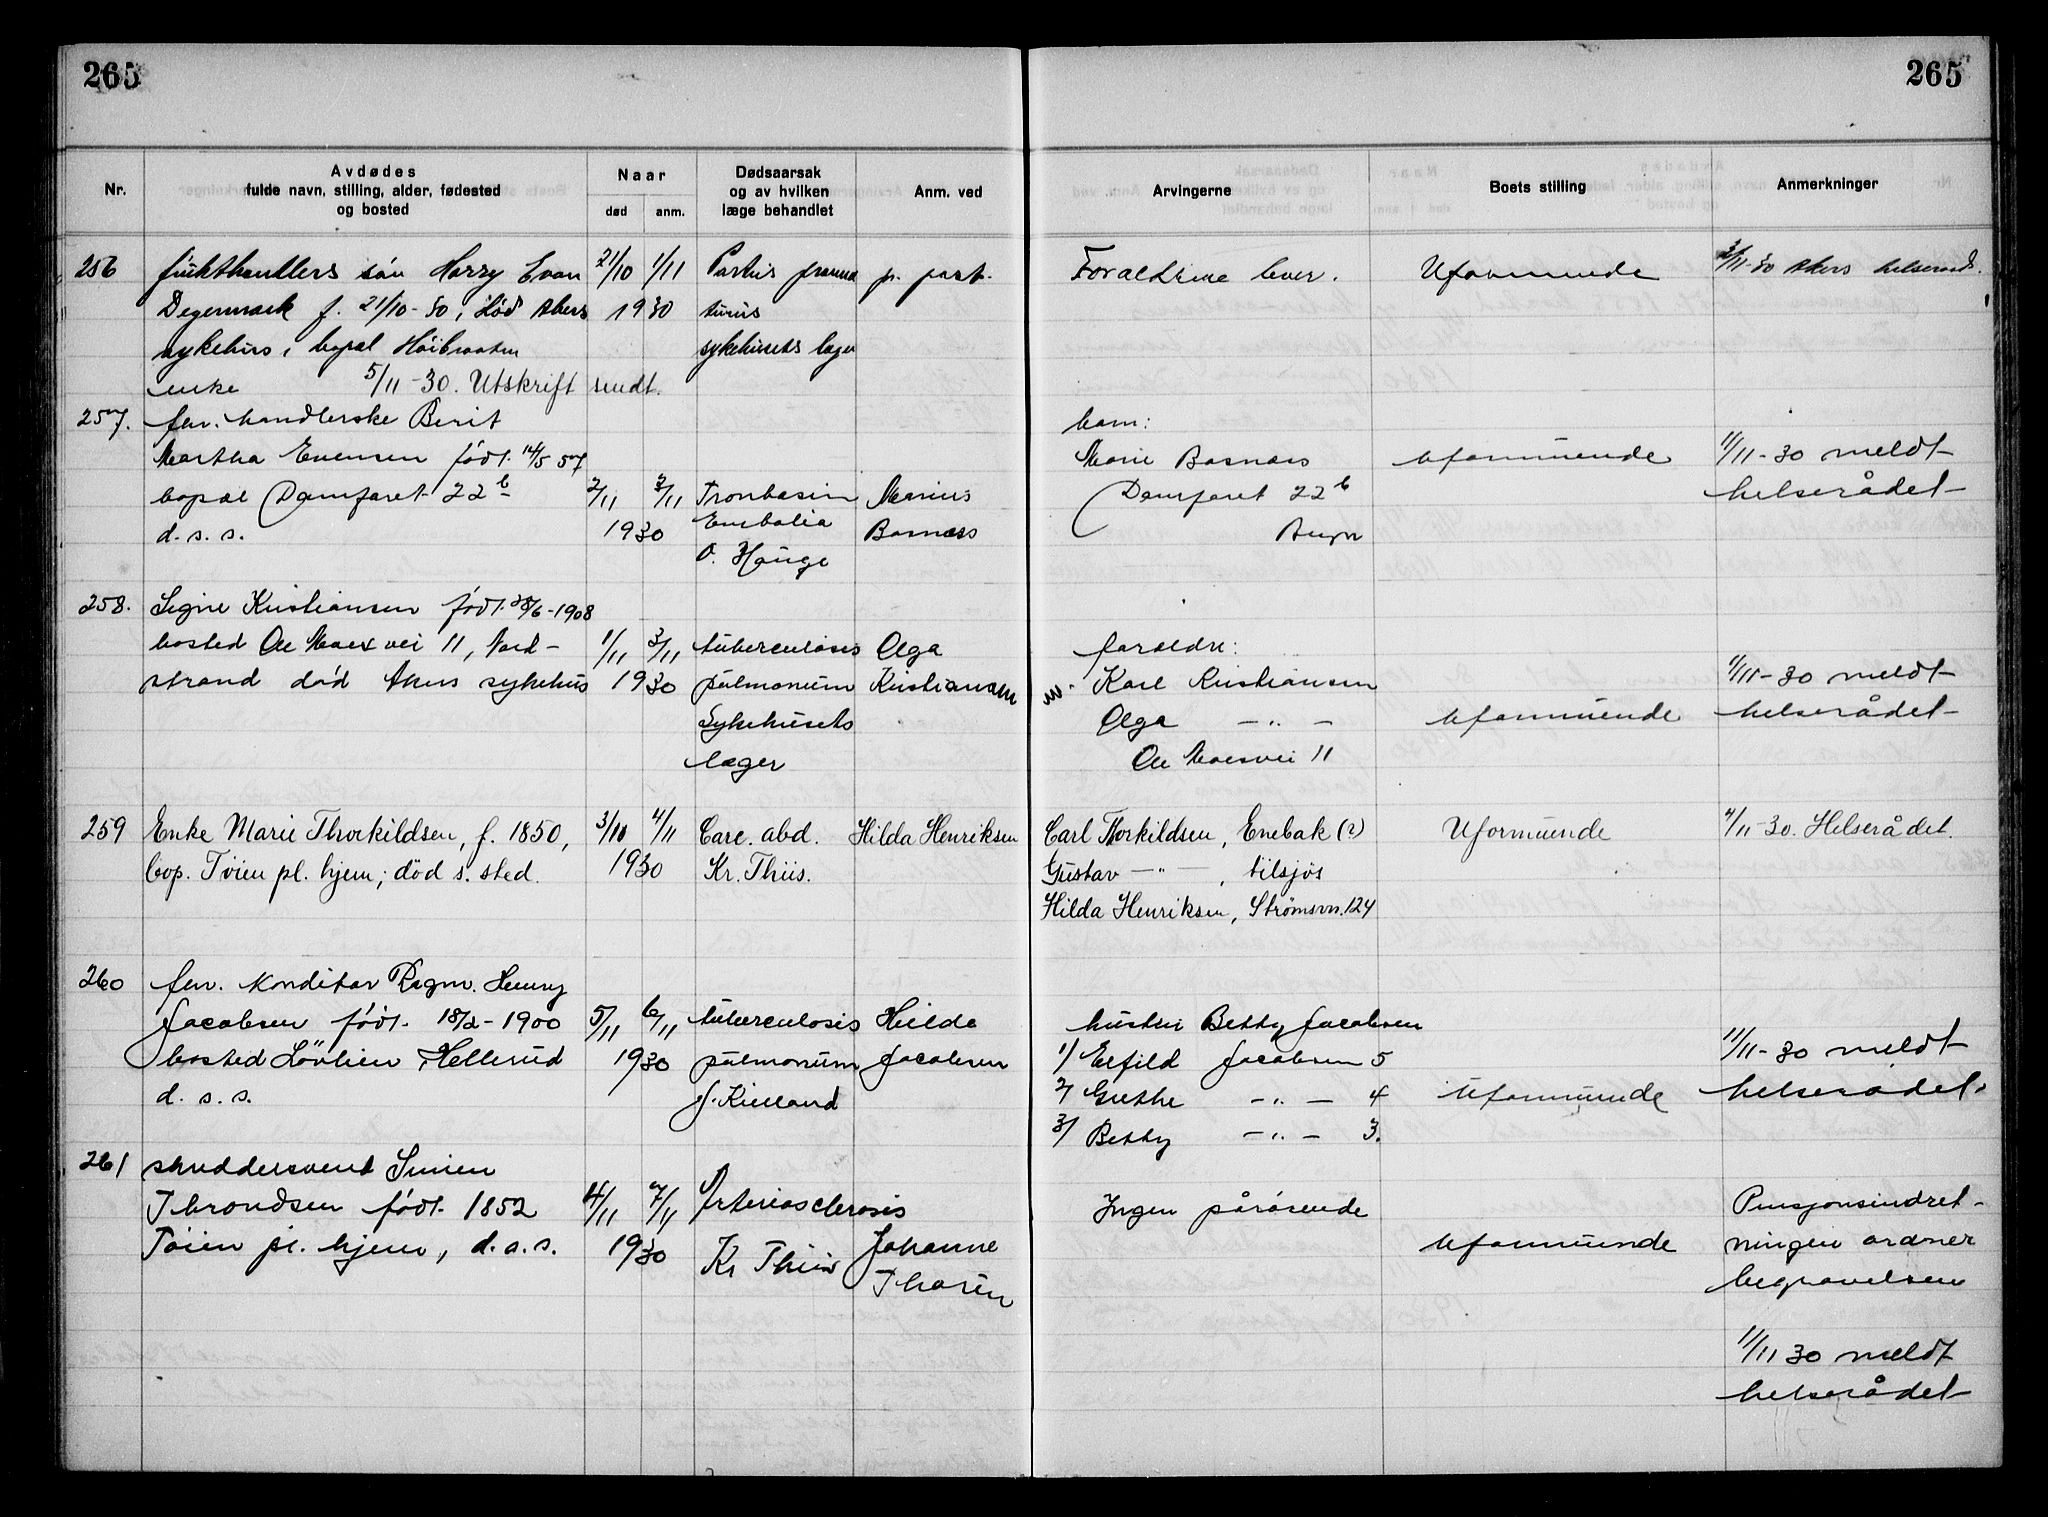 265
265
Nr.
Avdødes
fulde navn, stilling, alder, fødested
og bosted
Naar
død
anm.
Dødsaarsak
og av hvilken
læge behandlet
Anm. ved
Arvingerne
Boets stilling
Anmerkninger
256
søn Harry Evan
Degermark f. 21/10-30, død Akers
sykehus, bopæl Höibraaten
5/11-30. Utskrift sendt.
21/10 1/11
1930
Partus præma
turus
sykehusets læger
p. post.
Forældrene lever.
Uformuende
3/11-30 Akers helseraad.
257.
enke
fhv. handlerske Berit
Martha Evensen født 14/5 57
bopæl Damfaret 22 b
d. s. s.
2/11 3/11
1930
Embolia
O. Hauge
Marius
Bosness
barn:
Marie Bosnæss
Damfaret 22 b
Bryn
uformuende
11/11-30 meldt
helserådet
258.
Signe Kristiansen født 28/6-1908
bosted Ole Moes vei 11, Nord-
strand død Akers sykehus
1/11 3/11
1930
tuberculosis
pulmonum
Sykehusets
læger
Olga
Kristiansen
forældre:
Karl Kristiansen
Olga —"—
Ole Moesvei 11
uformuende
11/11-30 meldt
helserådet
259
Enke Marie Thorkildsen, f. 1850,
bop. Töien pl. hjem; död s. sted.
3/10 4/11
1930
Carc. abd.
Kr. Thiis.
Hilda Henriksen
Carl Thorkildsen, Enebak (?)
Gustav —"—, tilsjös
Hilda Henriksen, Strømsvn. 124
Uformuende
4/11-30. Helserådet.
260
fhv. konditor Ragn. Henry
Jacobsen født 18/2-1900
bosted Lövlien Hellerud
d. s. s.
5/11 6/11
1930
tuberculosis
pulmonum
J. Kielland
Hilda
Jacobsen
hustru Betty Jacobsen
1/ Eifild Jacobsen 5
2/ Grethe —"— 4
3/ Betty —"— 3.
uformuende
11/11-30 meldt
helserådet.
261
skreddersvend Simen
Throndsen født 1852
Töien pl. hjem, d. s. s.
4/11 7/11
1930
Arteriosclerosis
Kr Thiis
Johanne
Thorén
Ingen pårørende
uformuende
Pensjonsindret-
ningen ordner
begravelsen
11/11 30 meldt
helserådet